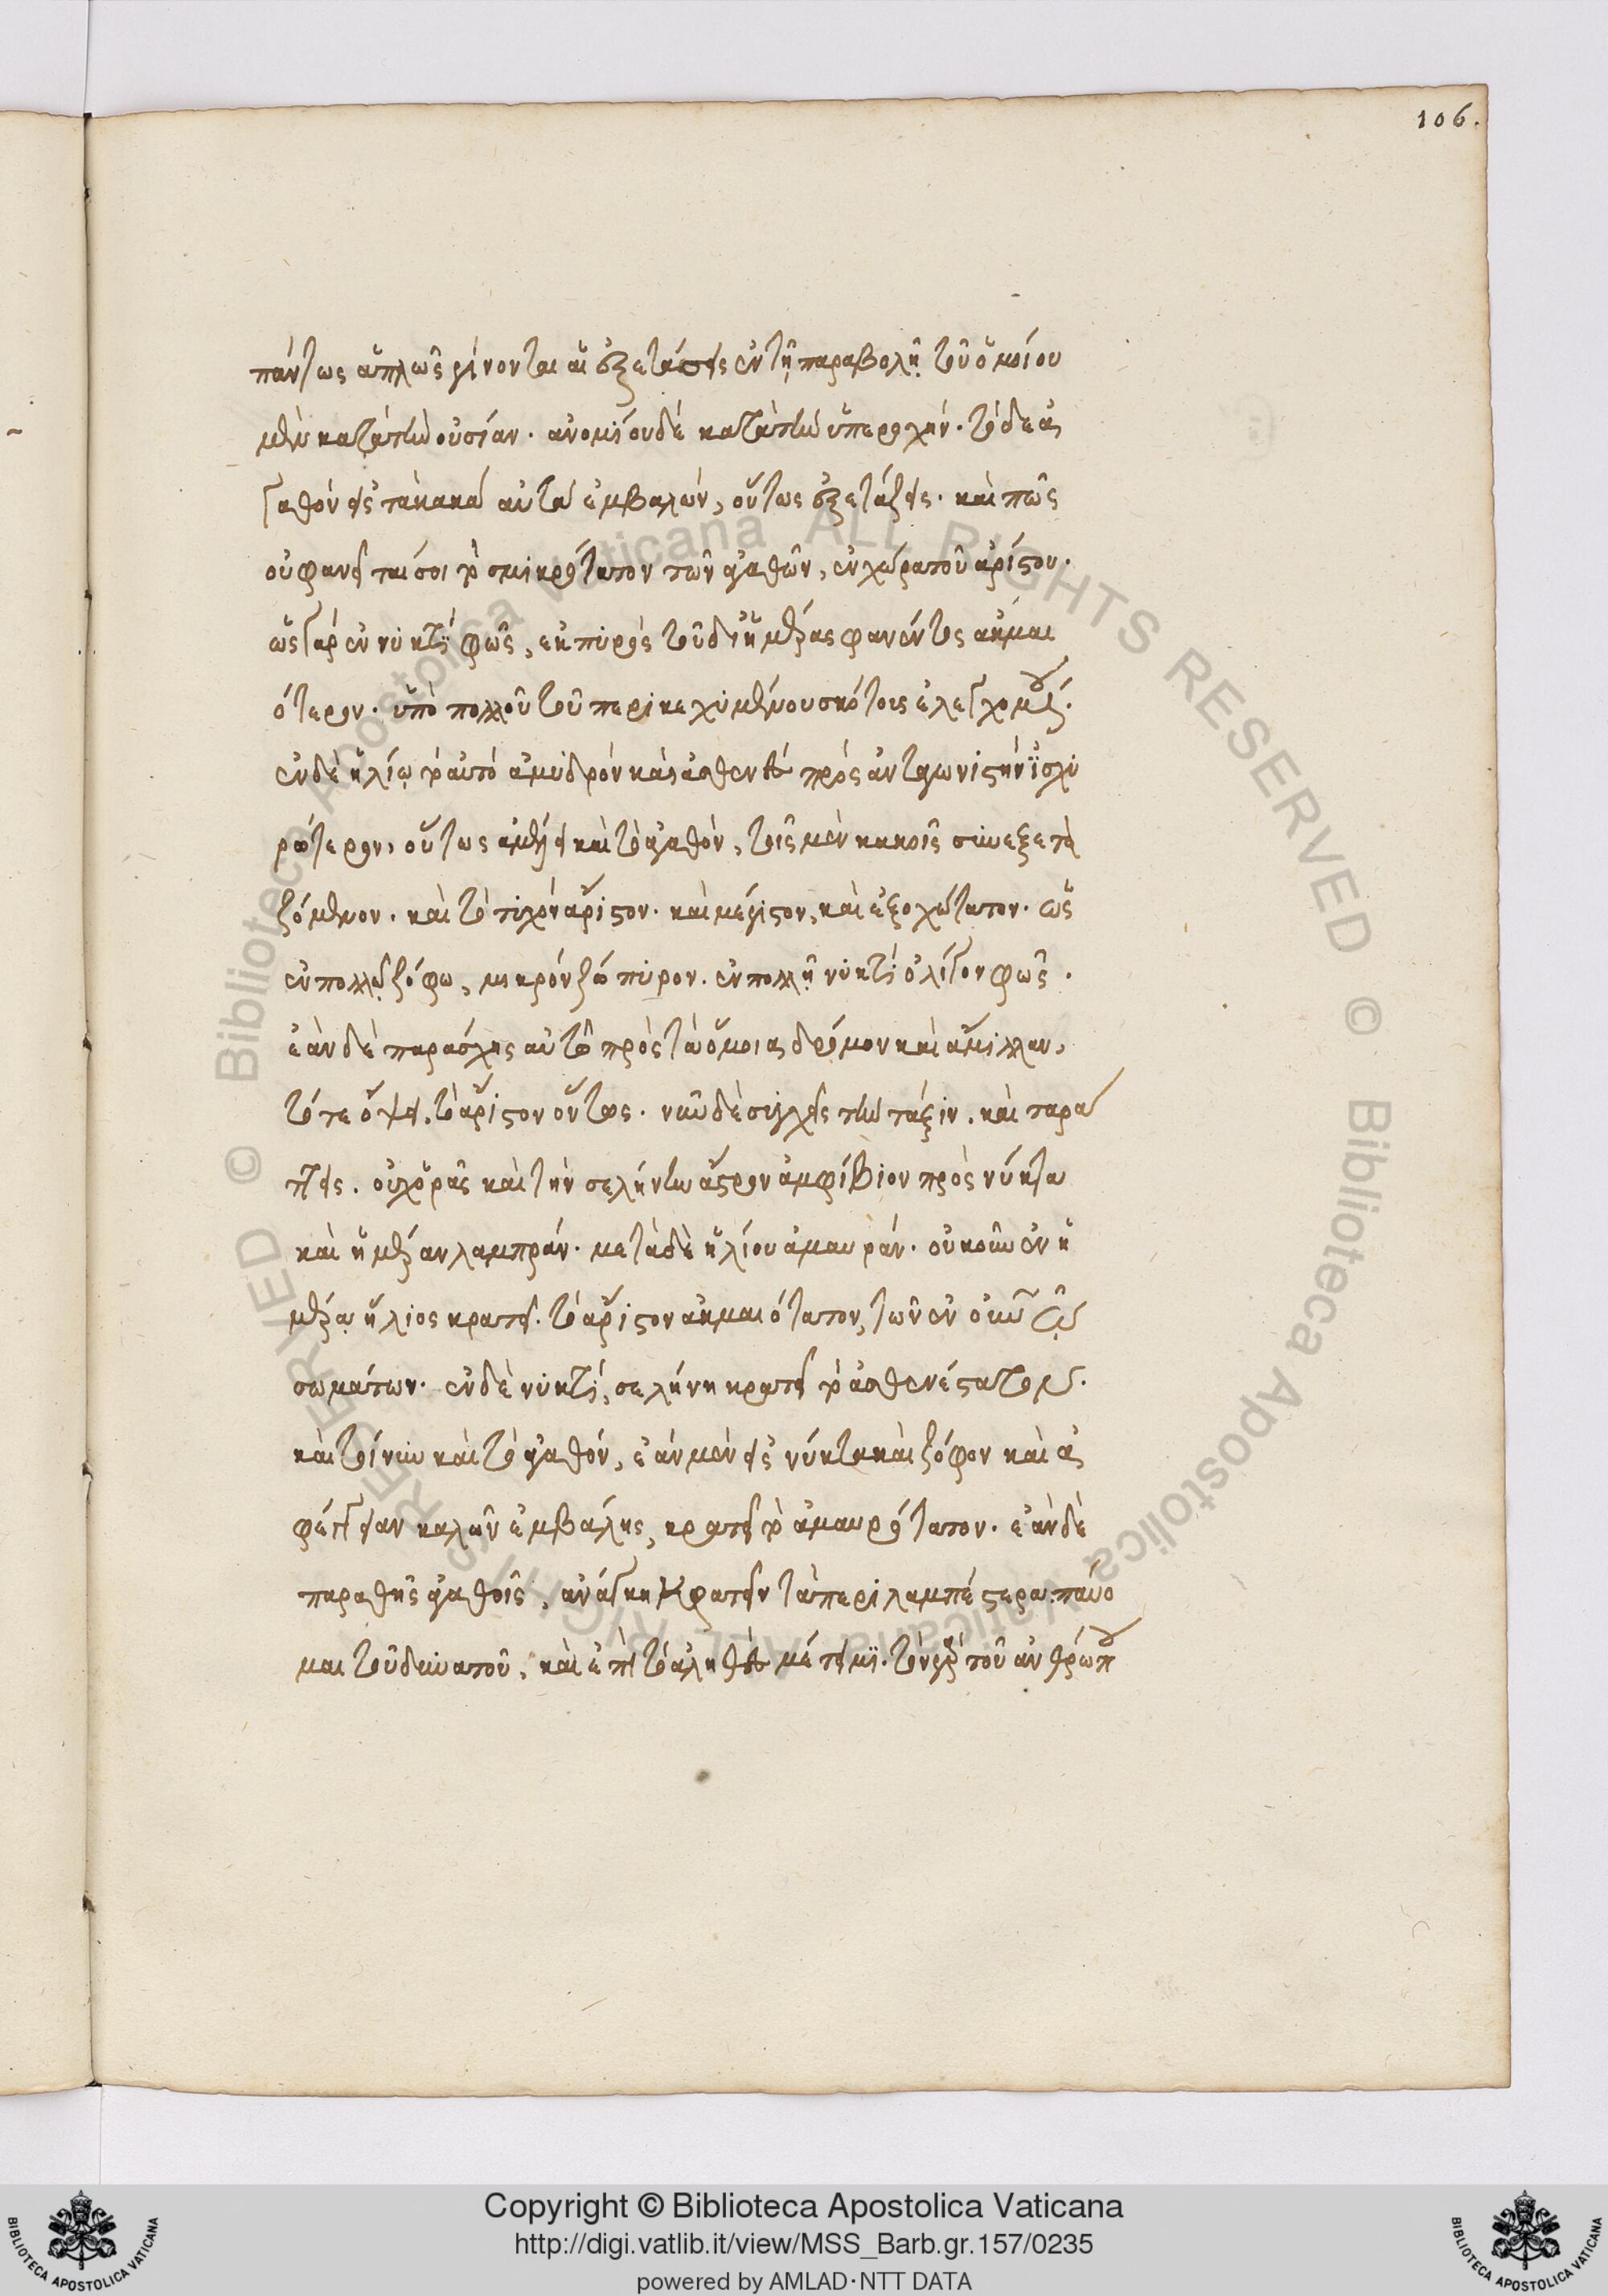 106.
πάντως ἁπλῶς γίνονται αἱ ἐξετάσεις ἐν τῇ παραβολῇ τοῦ ὁμοίου
μὲν κατὰ τὴν οὐσίαν. ἀνομίου δὲ κατὰ τὴν ὑπεροχήν. τόδε ἀ
γαθὸν εἰς τὰ κακὰ αὐτὰ ἐμβαλών, οὕτως ἐξετάζεις. καὶ πῶς
οὐ φανεῖται σοι τὸ σμικρότατον τῶν ἀγαθῶν, ἐν χώρα τοῦ ἀρίστου.
ὡς γὰρ ἐν νυκτὶ φῶς, ἐκ πυρὸς τοῦ δι' ἡμέρας φανέντος ἀκμαι
ότερον. ὑπὸ πολλοῦ τοῦ περικεχυμένου σκότους ἐλεγχομένου.
ἐν δὲ ἡλίῳ τὸ αὐτὸ ἀμυδρὸν καὶ ἀσθενεῖ πρὸς ἀνταγωνιστὴν ἰσχυ
ρότερον, οὕτως ἀμέλει καὶ τὸ ἀγαθόν, τοῖς μὲν κακοῖς συνεξετα
ζόμενον. καὶ τὸ τυχὸν ἄριστον. καὶ μέγιστον, καὶ ἐξοχώτατον. ὡς
ἐν πολλῷ ζόφω, μικρὸν ζώπυρον. ἐν πολλῇ νυκτὶ ὀλίγον φῶς.
ἐὰν δὲ παράσχης αὐτῷ πρὸς τὰ ὅμοια δρόμον καὶ ἅμιλλαν,
τότε ὄψει τὸ ἄριστον ὄντως. νῦν δὲ συγχεῖς τὴν τάξιν. καὶ ταρά
τεις. οὐχ ὁρᾶς καὶ τὴν σελήνην ἄστρον ἀμφίβιον πρὸς νύκτα
καὶ ἡμέραν λαμπράν. μετὰ δὲ ἡλίου ἀμαυράν. οὐκοῦν ἐν ἡ
μέρᾳ ἥλιος κρατεῖ. τὸ ἄριστον ἀκμαιότατον, τῶν ἐν οὐνῷ
σωμάτων. ἐν δὲ νυκτί, σελήνη κρατεῖ τὸ ἀσθενέστατον.
καὶ τοίνυν καὶ τὸ ἀγαθόν, ἐὰν μὲν εἰς νύκτα καὶ ζόφον καὶ ἀ
φέγγειαν καλῶν ἐμβάλης, κρατεῖ τὸ ἀμαυρότατον. ἐὰν δὲ
παραθῆς ἀγαθοῖς, ἀνάγκη κρατεῖν τὰ περιλαμπέστερα. παύο
μαι τοῦ δυνατοῦ, καὶ ἐπὶ τὸ ἀληθεῖ μέτειμι. τὸν γὰρ τοῦ ἀνθρώπου
Copyright © Biblioteca Apostolica Vaticana
http://digi.vatlib.it/view/MSS_Barb.gr.157/0235
powered by AMLAD·NTT DATA